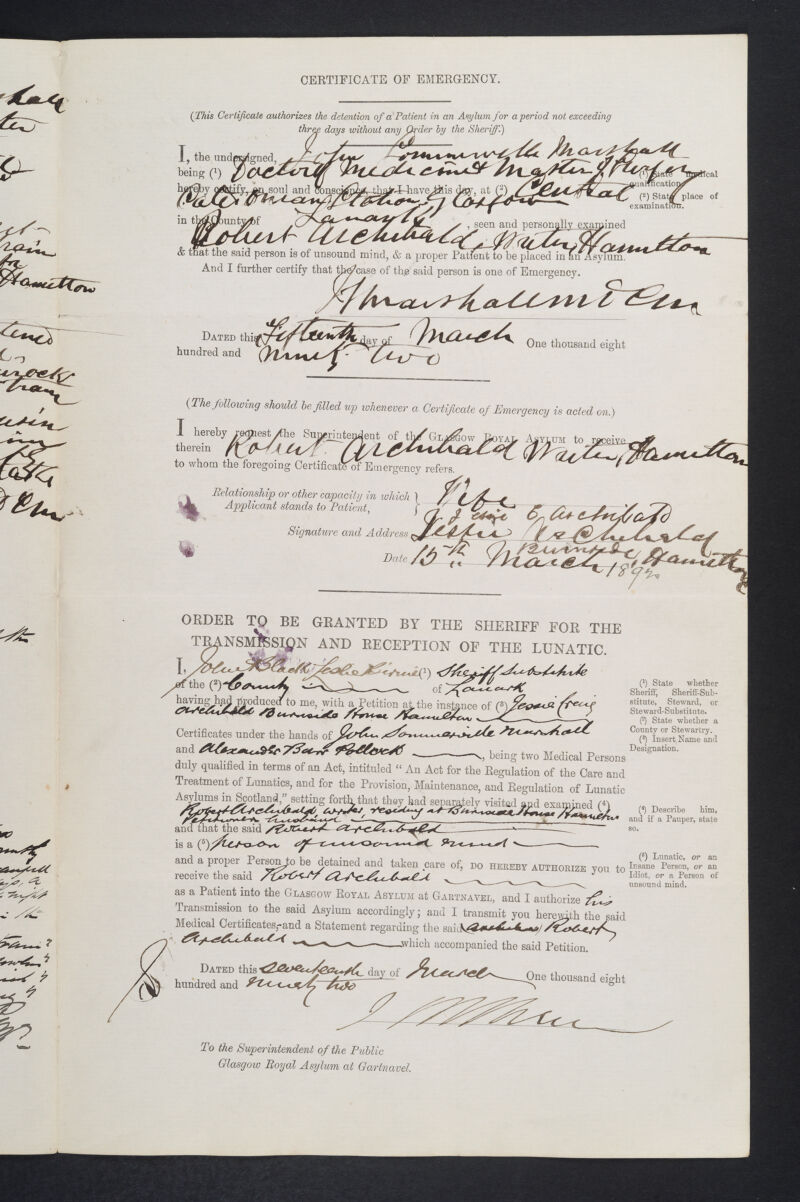 hall
Hamilton
CERTIFICATE OF EMERGENCY.
(This Certificate authorizes the detention of a Patient in an Asylum for a period not exceeding
three days without any Order by the Sheriff.)
I, the undersigned, John Marshall
being (¹) Doctor of Medicine & Master of Surgery
(¹) State medical
qualification.
hereby certify, on soul and conscience, that I have this day, at (²) Central
Caledonian Station, Glasgow
(²) State place of
examination.
in the County of Lanark, seen and personally examined
Robert Archibald, Writer, Hamilton
& that the said person is of unsound mind, & a proper Patient to be placed in an Asylum.
And I further certify that the case of the said person is one of Emergency.
J Marshall M D C M
DATED this Fifteenth day of March One thousand eight
hundred and ninety two
(The following should be filled up whenever a Certificate of Emergency is acted on.)
I hereby request the Superintendent of the GLASGOW ROYAL ASYLUM to receive
therein Robert Archibald Writer, Hamilton
to whom the foregoing Certificate of Emergency refers.
Relationship or other capacity in which
Applicant stands to Patient,
} Wife
Jessie C Archibald
Signature and Address Jessie Archibald
Burnside, Hamilton
Date 15th March 1892
ORDER TO BE GRANTED BY THE SHERIFF FOR THE
TRANSMISSION AND RECEPTION OF THE LUNATIC.
I, Leslie Birnie (¹) Sheriff Substitute
of the (²) County of Lanark
(¹) State whether
Sheriff, Sheriff-Sub-
stitute, Steward, or
Steward-Substitute.
(²) State whether a
County or Stewartry.
(³) Insert Name and
Designation.
having had produced to me, with a Petition at the instance of (³) Jessie Craig
Archibald Burnside House Hamilton
Certificates under the hands of John Sommerville Marshall
and Alexander Barr Pollock, being two Medical Persons
duly qualified in terms of an Act, intituled "An Act for the Regulation of the Care and
Treatment of Lunatics, and for the Provision, Maintenance, and Regulation of Lunatic
Asylums in Scotland," setting forth that they had separately visited and examined (⁴)
(⁴) Describe him,
and if a Pauper, state
so.
Robert Archibald, writer, residing at Burnside House Hamilton
Petitioners husband
and that the said Robert Archibald
is a (⁵) person of unsound mind
(⁵) Lunatic, or an
Insane Person, or an
Idiot, or a Person of
unsound mind.
and a proper Person to be detained and taken care of, DO HEREBY AUTHORIZE you to
receive the said Robert Archibald
as a Patient into the GLASGOW ROYAL ASYLUM AT GARTNAVEL, and I authorize his
Transmission to the said Asylum accordingly; and I transmit you herewith the said
Medical Certificates, and a Statement regarding the said Robert
Archibald which accompanied the said Petition.
DATED this seventeenth day of March One thousand eight
hundred and ninety two
To the Superintendent of the Public
Glasgow Royal Asylum at Gartnavel.